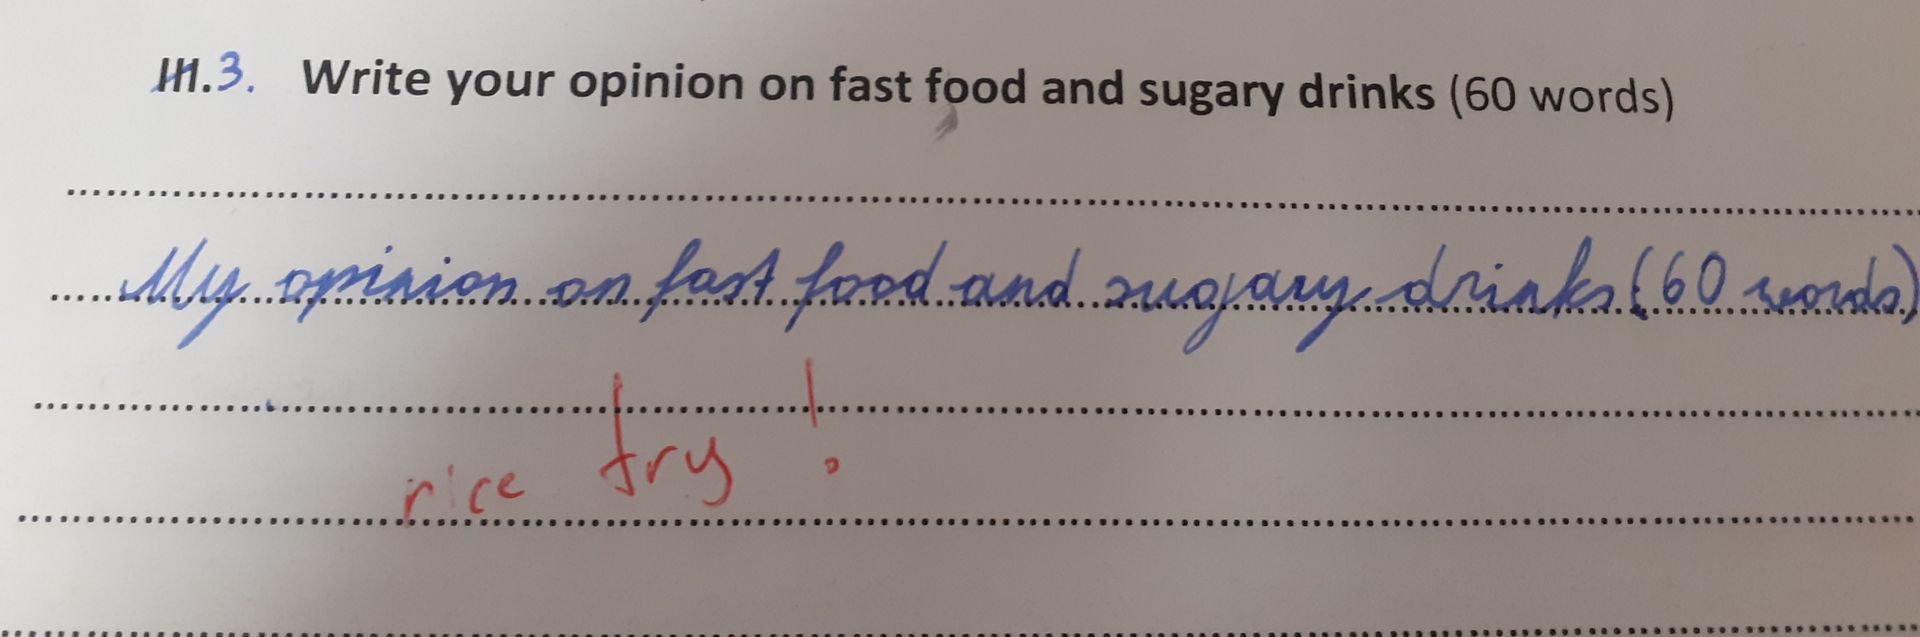 III.3. Write your opinion on fast food and sugary drinks (60 words)
My opinion on fast food and sugary drinks (60 words)
rice try !